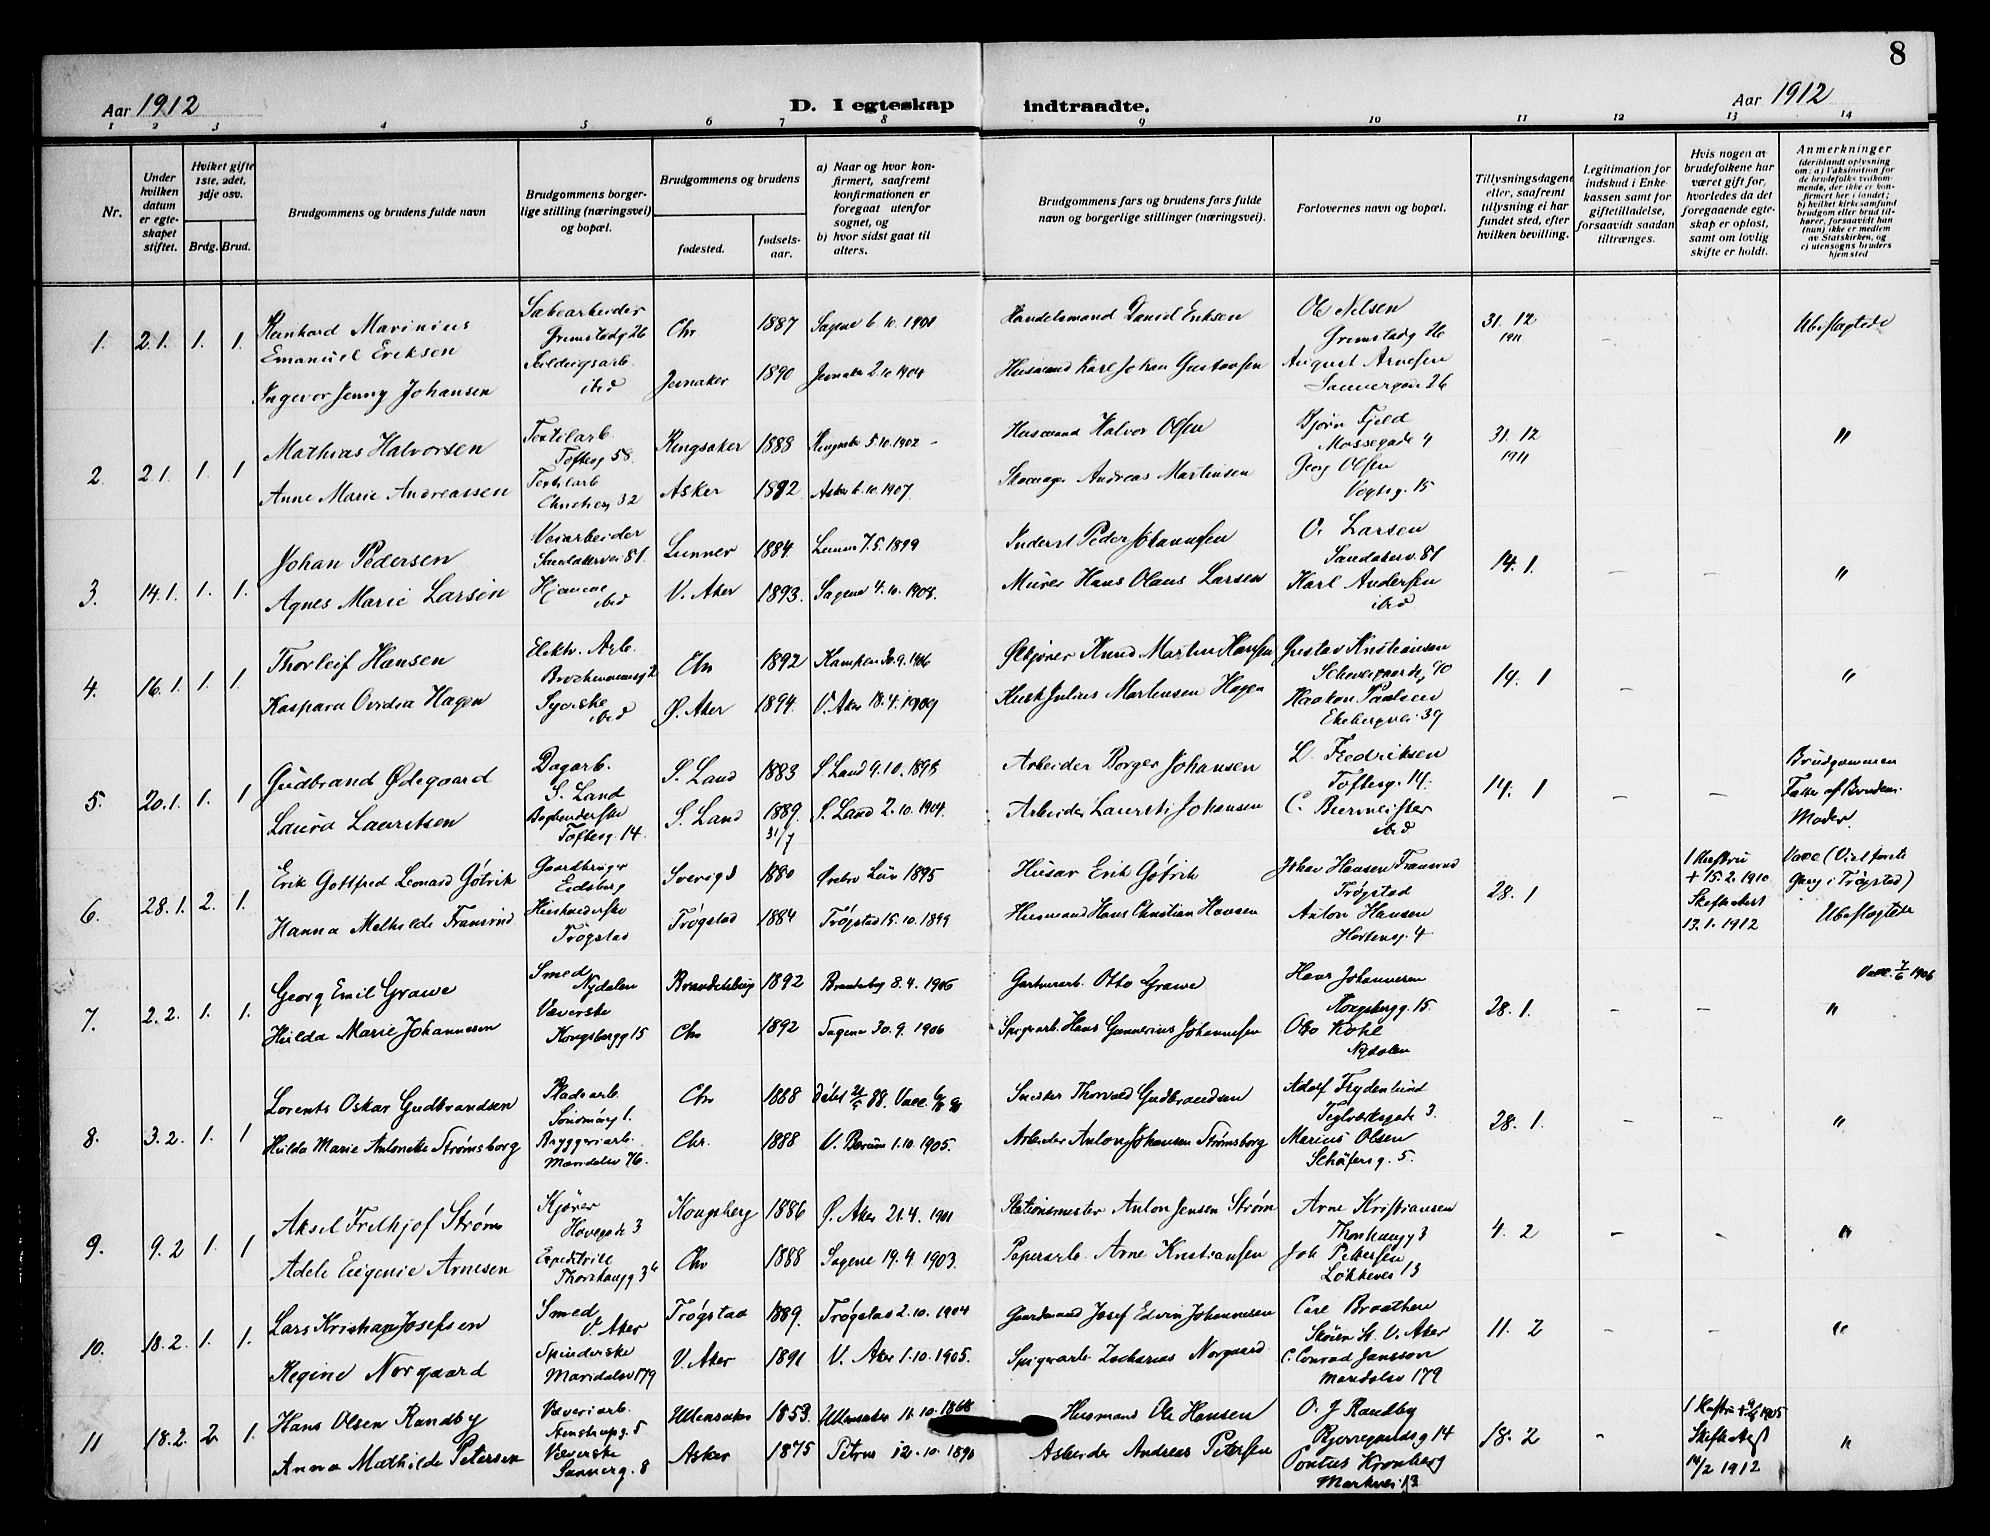 8
Aar 1912
D. I egteskap indtraadte.
Aar 1912
1 2 3 4 5 6 7 8 9 10 11 12 13 14
Nr.
Under hvilken datum er egteskapet stiftet.
Hviket gifte 1ste, 2det, 3dje osv.
Brdg. Brud.
Brudgommens og brudens fulde navn
Brudgommens borgerlige stilling (næringsvei) og bopæl.
Brudgommens og brudens
fødested.
fødselsaar.
a) Naar og hvor konfirmert, saafremt konfirmationen er foregaat utenfor sognet, og
b) hvor sidst gaat til alters.
Brudgommens fars og brudens fars fulde navn og borgerlige stillinger (næringsvei).
Forlovernes navn og bopæl.
Tillysningsdagene eller, saafremt tillysning ei har fundet sted, efter hvilken bevilling.
Legitimation for indskud i Enkekassen samt for giftetilladelse, forsaavidt saadan tiltrænges.
Hvis nogen av brudefolkene har været gift før, hvorledes da det foregaaende egteskap er opløst, samt om lovlig skifte er holdt.
Anmerkninger
(deriblandt oplysning om: a) vaksination for de brudefolks vedkommende, der ikke er konfirmert her i landet; b) hvilket kirkesamfund brudgom eller brud tilhører, forsaavidt han (hun) ikke er medlem av Statskirken, og c) utensogns bruders hjemsted
1. 2.1. 1. 1. Reinhard Marinius Emanuel Eriksen
Grimstadg 26 Chr 1887 Sagene 6.10.1901 Handelsmand David Eriksen Ole Nelsen Grimstadg 26 31.12 1911 Ubeslægtede
Ingevor Jenny Johansen
ibid Jevnaker 1890 Jevnaker 2.10.1904 Husmand Karl Johan Gustavsen August Arnesen Sannergade 26
2. 2.1. 1. 1 Mathias Halvorsen Textilarb Tofteg 58. Ringsaker 1888 Ringsaker 5.10.1902 Husmand Halvor Olsen Bjørn Fjeld Mossegade 4 31.12 1911 "
Anne Marie Andreassen Textilarb 32 Asker 1892 Asker 6.10.1907. Andreas Martinsen Georg Olsen Vogtsg. 15
3. 14.1. 1. 1. Johan Pedersen Veiarbeider Sandakervei 81. Lunner 1884. Lunner 7.5.1899 Inderst Peder Johannsen O. Larsen Sandakerv. 81 14.1. "
Agnes Marie Larsen Hjemme ibid V. Aker 1893. Sagene 4.10.1908. Murer Hans Olaus Larsen Karl Andersen ibid
4. 16.1. 1. 1. Thorleif Hansen Elektr. Arb. Chr 1892 Kampen 30.9.1906 Knud Martin Hansen Gustav Kristiansen 14.1 "
Kaspara Ovidia Hagen Syerske ibid Ø. Aker 1894. V. Aker 18.4.1909 Kusk Julius Martinsen Hagen Haakon Paulsen Ekebergvei 39
5. 20.1. 1. 1 Gudbrand Ødegaard Dagarb. S. Land S. Land 1883 S. Land 9.10.1898 Arbeider Borger Johansen L. Fredriksen Tofteg. 14. 14.1 Brudgommen Fætter af Brudens Moder.
Laura Lauritsen Tofteg 14. S. Land 1889. 31/7 S. Land 2.10.1904. Arbeider Laurits Johansen C. Burmeister ibid
6. 28.1. 2. 1. Erik Gottfred Leonard Götrik Gaardbruger Eidsberg Sverige 1880 Ørebro Len 1895 Husar Erik Götrik Johan Hansen Trøgstad 28.1 1 Hustru + 15.2.1910 Skifte Attest 13.1.1912 Vacc (Viet første Gang i Trøgstad) Ubeslægtede
Hanna Mathilde Trøgstad Trøgstad 1884 Trøgstad 15.10.1899 Husmand Hans Christian Hansen Anton Hansen Hortensg. 4
7. 2.2. 1. 1. Georg Emil Grawe Smed Nydalen 1892 8.4.1906 Gartnerarb. Otto Grawe Hans Johannesen Kongsbergg. 15. 28.1. Vacc. 1906 "
Hilda Marie Johannesen Væverske Kongsbergg 15 Chr 1892 Sagene 30.9.1906 Spigerarb. Hans Gunnerius Johannesen Otto Kohl Nydalen
8. 3.2. 1. 1 Lorents Oskar Gudbrandsen Pladearb. Chr 1888 Snekker Thorvald Gudbrandsen Adolf Frydenlund Teglverksgade 3. 28.1. "
Hilda Marie Antonette Strømsborg Bryggeriarb. Maridalsv 76. Chr. 1888 V. Bærum 1.10.1905. Arbeider Anton Johansen Strømsborg Marius Olsen Schäfersg. 5.
9. 9.2 1. 1 Aksel Fridthjof Strøm Kjører Havegade 3 Kongsberg 1886 Ø. Aker 21.4.1901 Stationsmester Anton Jensen Strøm Arne Kristiansen Thorshaugg 3 4.2 "
Adele Eugenie Arnesen Thorshaugg 3 Chr 1888 Sagene 19.4.1903. Papirarb. Arne Kristiansen Joh Pettersen Løkkevei 13
10. 18.2. 1. 1. Lars Kristian Josefsen Smed V. Aker Trøgstad 1889. Trøgstad 2.10.1904 Gaardmand Josef Edvin Johannesen Carl Braathen Skøien St. V. Aker 11.2 "
Regine Norgaard Spinderske Maridalsv 179 V. Aker 1891 V. Aker 1.10.1905. Spigerarb. Zacharias Norgaard C. Conrad Jansson Maridalsv 179
11 18.2. 2. 1. Hans Olsen Randby Væveriarb. Ullensaker 1853. Ullensaker 11.10.1868 Husmand Ole Hansen O. J. Randby Bjerregaardsg 14 18.2 1 Hustru + 1905 Skifte Att 14/2 1912 "
Anna Mathilde Petersen Væverske Sannerg. 8 Asker 1875 Petrus 12.10.1890 Arbeider Andreas Petersen Pontus Kronberg Markvei 13